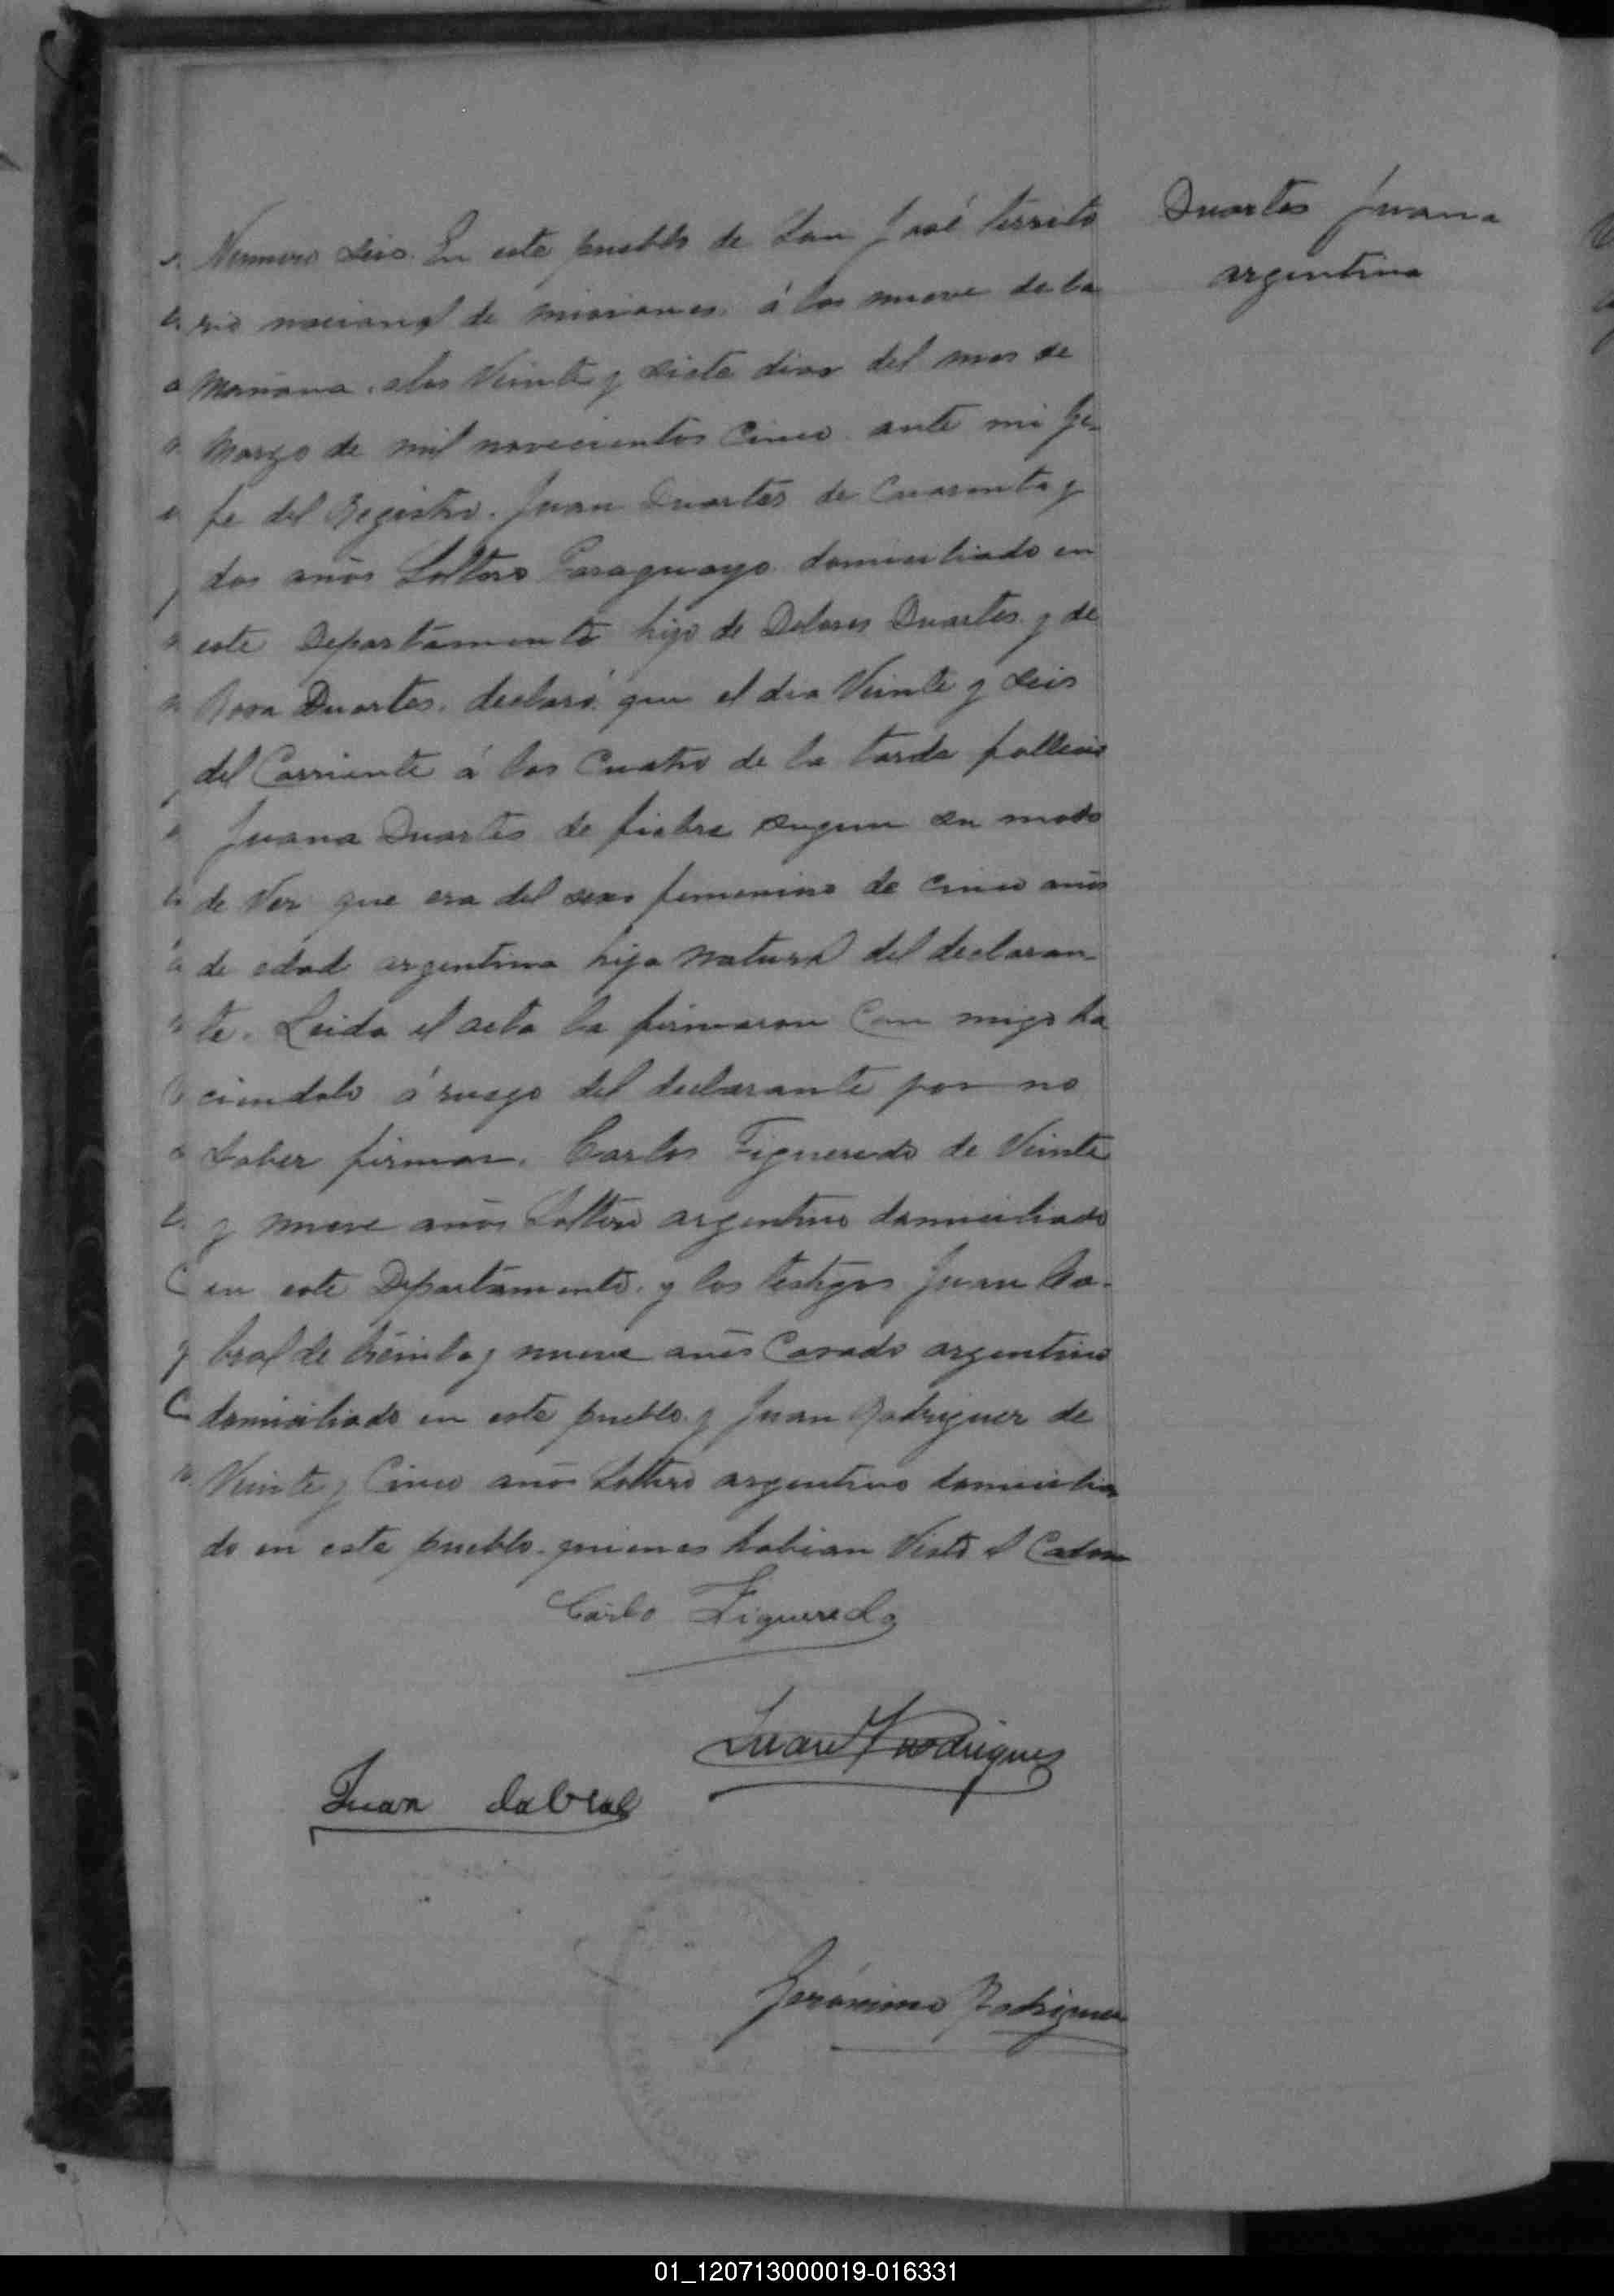 Duartes Juana
argentina
Nummero Seis. En este pueblo de San José territo
rio nacional de misiones. á las nueve de la
Mañana. alos Veinte y Siete dias del mes de
Marzo de mil novecientos Cinco. ante mi Je-
fe del Registro. Juan Duartes de Cuarenta y
dos años Soltero Paraguayo domiciliado en
este Departamento hijo de Dolores Duartes y de
Rosa Duartes. declaró. que el dia Veinte y Seis
del Corriente á las Cuatro de la tarde fallecio
Juana Duartes de fiebre segun su modo
de Ver que era del sexo femenino de cinco años
de edad argentina hija natural del declaran-
te. Leida el acta la firmaron Con migo ha
ciendolo á ruego del declarante por no
Saber firmar. Carlos Figueredo de Veinte
y nueve años Soltero argentino domiciliado
en este Departamento. y los testigos Juan Ca-
bral de treinta y nueve años Casado argentino
domiciliado en este pueblo y Juan Rodriguez de
Veinte y Cinco años Soltero argentino domicilia
do en este pueblo. quienes habian Visto el Cadaver
Carlo Figueredo
Juan Rodriguez
Juan Cabral
Jerónimo Rodriguez
01_120713000019-016331